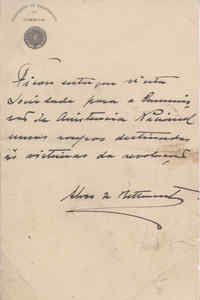 Ficam entregues n'esta
Sociedade para a Commis-
são de Assistencia Nacional
umas roupas destinadas
ás victimas da revolução
Alves de